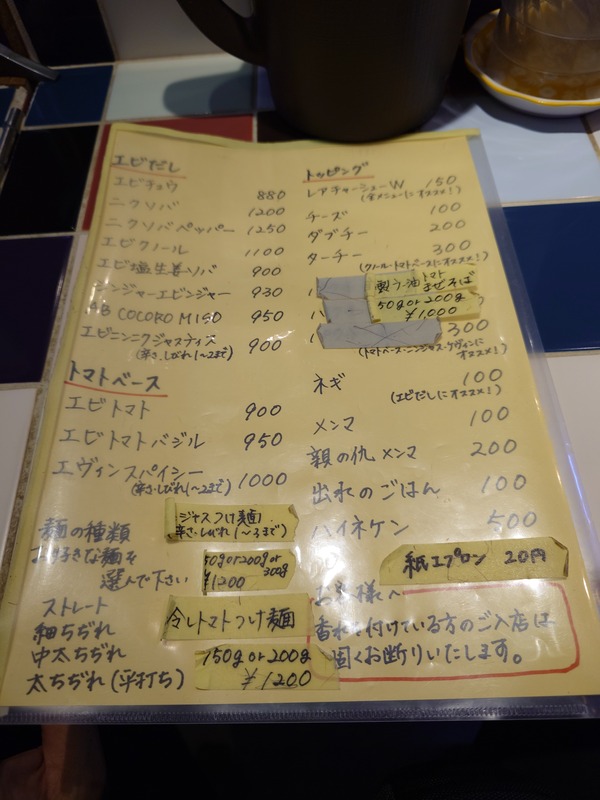 エビだし
エビキョウ 880
ニクソバ 1200
ニクソバペッパー 1250
エビクノール 1100
エビ塩生姜ソバ 900
ジンジャーエビンジャー 930
AB COCORO MISO 950
エビニンニクジャスティス 900
(辛さ・しびれ1〜2まで)
トマトベース
エビトマト 900
エビトマトバジル 950
エヴィンスパイシー 1000
(辛さ・しびれ1〜2まで)
ジャスつけ麺
辛さ・しびれ(〜3まで)
50g or 200g or
300g
¥1200
麺の種類
お好きな麺を
選んで下さい
ストレート
細ちぢれ
中太ちぢれ
太ちぢれ(平打ち)
冷しトマトつけ麺
150g or 200g
¥1200
トッピング
レアチャーシューW 150
(全メニューにオススメ!)
チーズ 100
ダブチー 200
ターチー 300
(クノール・トマトベースにオススメ!)
製ラー油トマト
まぜそば
50g or 200g
¥1,000
300
オススメ!)
ネギ 100
(エビだしにオススメ!)
メンマ 100
親の仇メンマ 200
出来のごはん 100
ハイネケン 500
紙エプロン 20円
お客様へ
香水を付けている方のご入店は
固くお断りいたします。